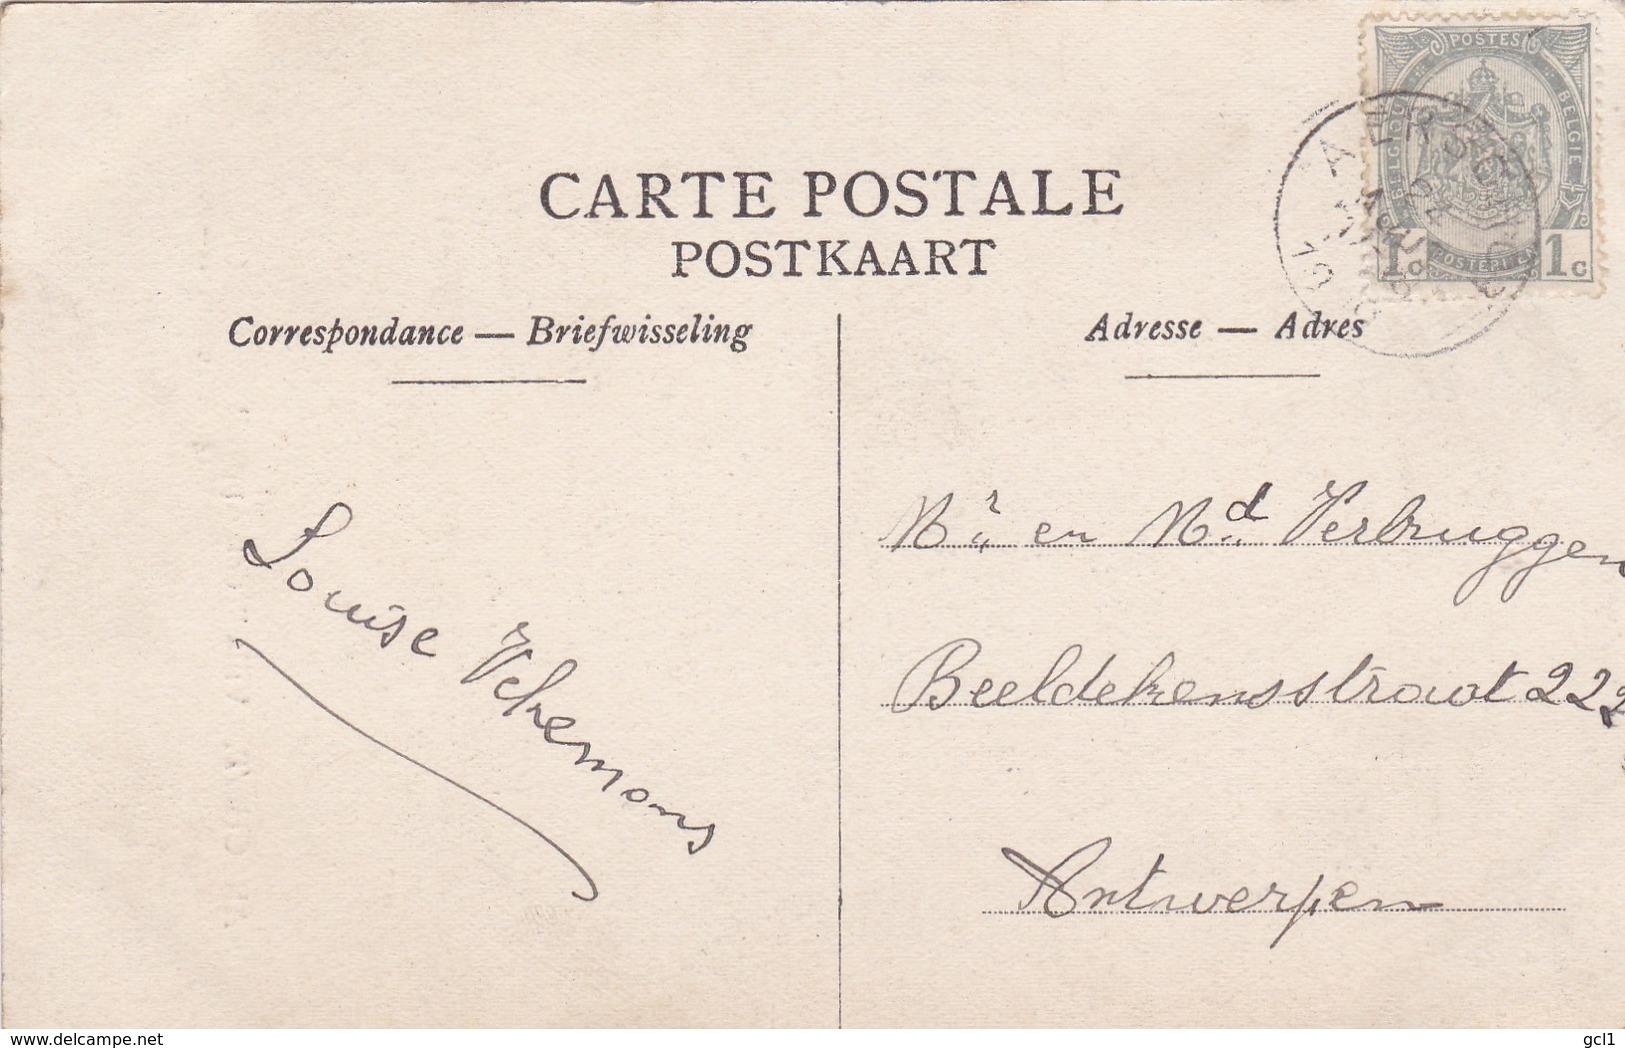 POSTES
BELGIQUE
BELGIË
1c 1c
CARTE POSTALE
POSTKAART
Correspondance — Briefwisseling
Adresse — Adres
Louise Vekemans
Mr en Md Verbruggen
Beeldekensstraat 222
Antwerpen
www.delcampe.net
gcl1